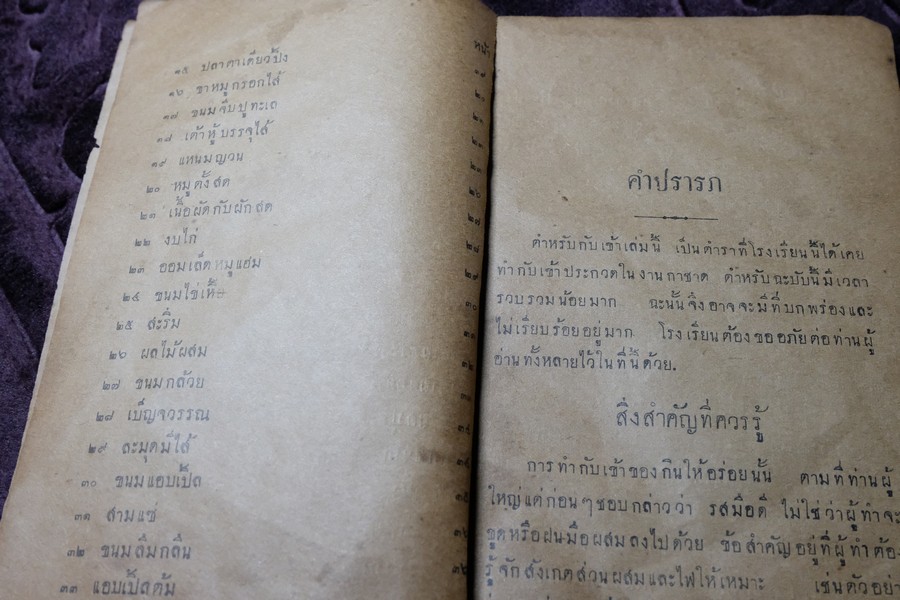 หน้า
๑๕ ปลาคาเตียวป๋ง ๑๙
๑๖ ขาหมูกรอกไส้ ๒๐
๑๗ ขนมจีบปูทะเล
๑๘ เต้าหู้บรรจุไส้
๑๙ แหนมญวน
๒๐ หมูตั้งสด ๒๖
๒๑ เนื้อผัดกับผักสด ๒๗
๒๒ งบไก่ ๒๗
๒๓ ออมเล็ตหมูแฮ่ม ๒๙
๒๔ ขนมไข่เหี้ย ๓๐
๒๕ สะริ่ม
๒๖ ผลไม้ผสม ๓๒
๒๗ ขนมกล้วย
๒๘ เบ็ญจวรรณ
๒๙ ละมุดมีไส้
๓๐ ขนมแอบเปิ้ล
๓๑ สามแซ่
๓๒ ขนมลืมกลืน
๓๓ แอบเปิลต้ม
คำปรารภ
ตำหรับกับเข้าเล่มนี้ เป็นตำราที่โรงเรียนนี้ได้เคย
ทำกับเข้าประกวดในงานกาชาด ตำหรับฉะบับนี้มีเวลา
รวบรวมน้อยมาก ฉะนั้นจึงอาจจะมีที่บกพร่องและ
ไม่เรียบร้อยอยู่มาก โรงเรียนต้องขออภัยต่อท่านผู้
อ่านทั้งหลายไว้ในที่นี้ด้วย.
สิ่งสำคัญที่ควรรู้
การทำกับเข้าของกินให้อร่อยนั้น ตามที่ท่านผู้
ใหญ่แต่ก่อนๆชอบกล่าวว่า รสมือดี ไม่ใช่ว่าผู้ทำจะ
ขูดหรือฝนมือผสมลงไปด้วย ข้อสำคัญอยู่ที่ผู้ทำต้อง
รู้จักสังเกตส่วนผสมและไฟให้เหมาะ เช่นตัวอย่า